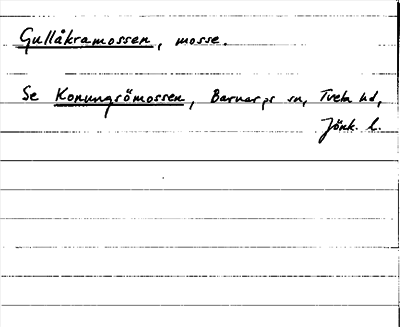 Gullåkramossen, mosse.
Se Konungsömossen, Barnarps sn, Tveta hd,
Jönk. l.